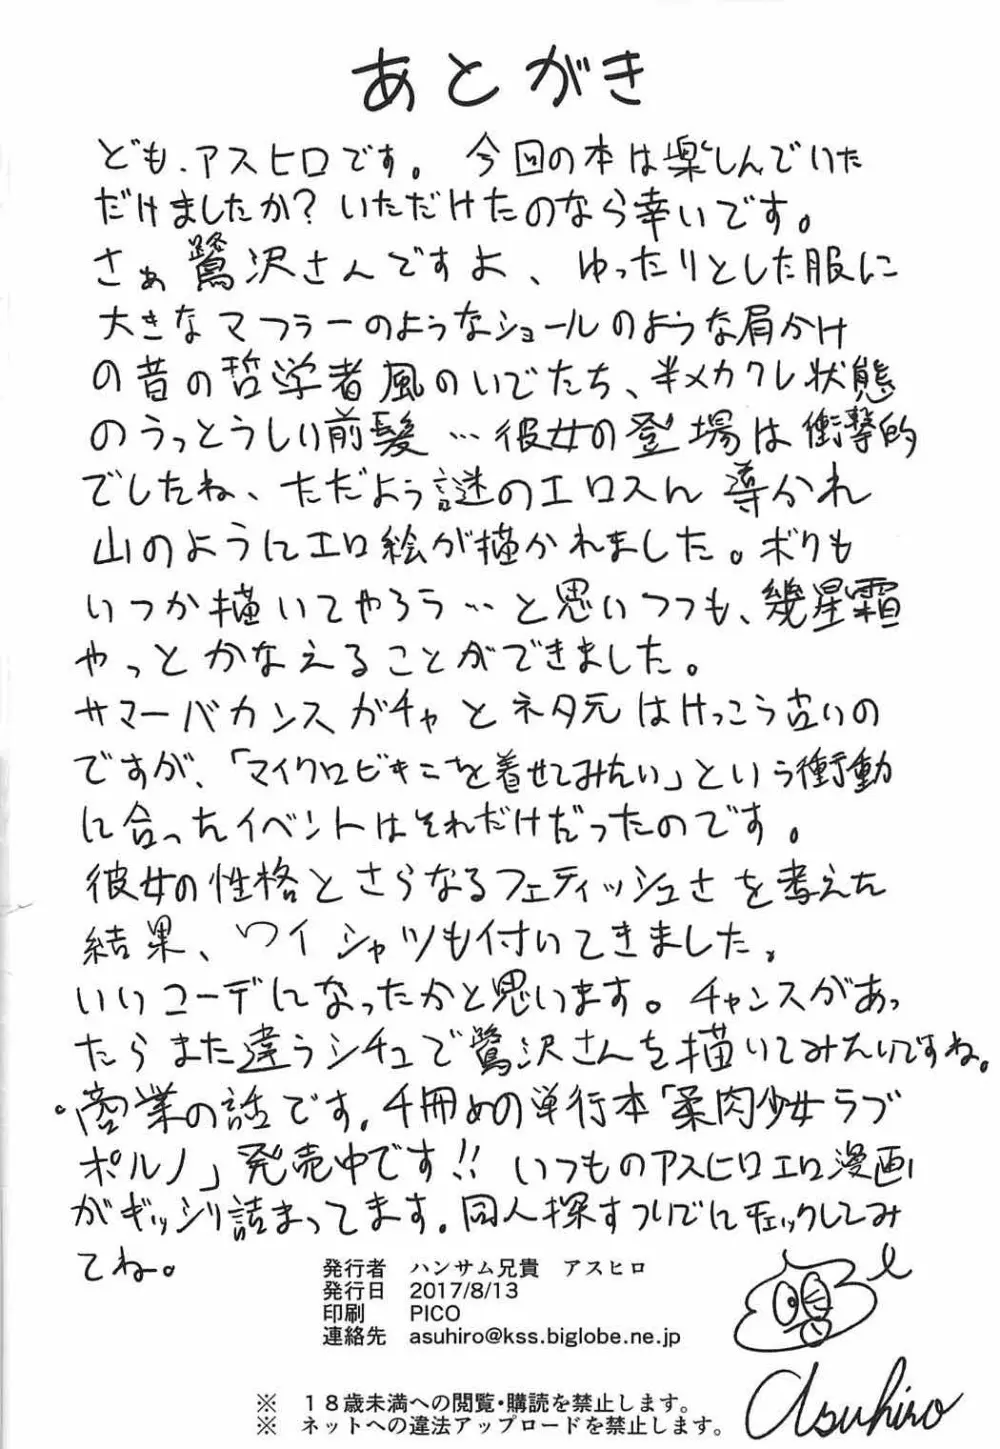 あとがき
ども、アスヒロです。 今回の本は楽しんでいた
だけましたか?いただけたのなら幸いです。
さぁ鷺沢さんですよ、ゆったりとした服に
大きなマフラーのようなショールのような肩かけ
の昔の哲学者風のいでたち、半メカクレ状態
のうっとうしい前髪…彼女の登場は衝撃的
でしたね、ただよう謎のエロスん導かれ
山のようにエロ絵が描かれました。ボクも
いつか描いてやろう…と思いつつも、幾星霜
やっとかなえることができました。
サマーバカンスガチャとネタ元はけっこう古いの
ですが、「マイクロビキニを着せてみたい」という衝動
に合ったイベントはそれだけだったのです。
彼女の性格とさらなるフェティッシュさを考えた
結果、ワイシャツも付いてきました。
いいコーデになったかと思います。チャンスがあっ
たらまた違うシチュで鷺沢さんを描いてみたいですね。
・商業の話です。4冊めの単行本「柔肉少女ラブ
ポルノ」発売中です!! いつものアスヒロエロ漫画
がギッシリ詰まってます。同人探すついでにチェックしてみ
てね。
発行者 ハンサム兄貴 アスヒロ
発行日 2017/8/13
印刷 PICO
連絡先 asuhiro@kss.biglobe.ne.jp
Asuhiro
※ 18歳未満への閲覧・購読を禁止します。
※ ネットへの違法アップロードを禁止します。